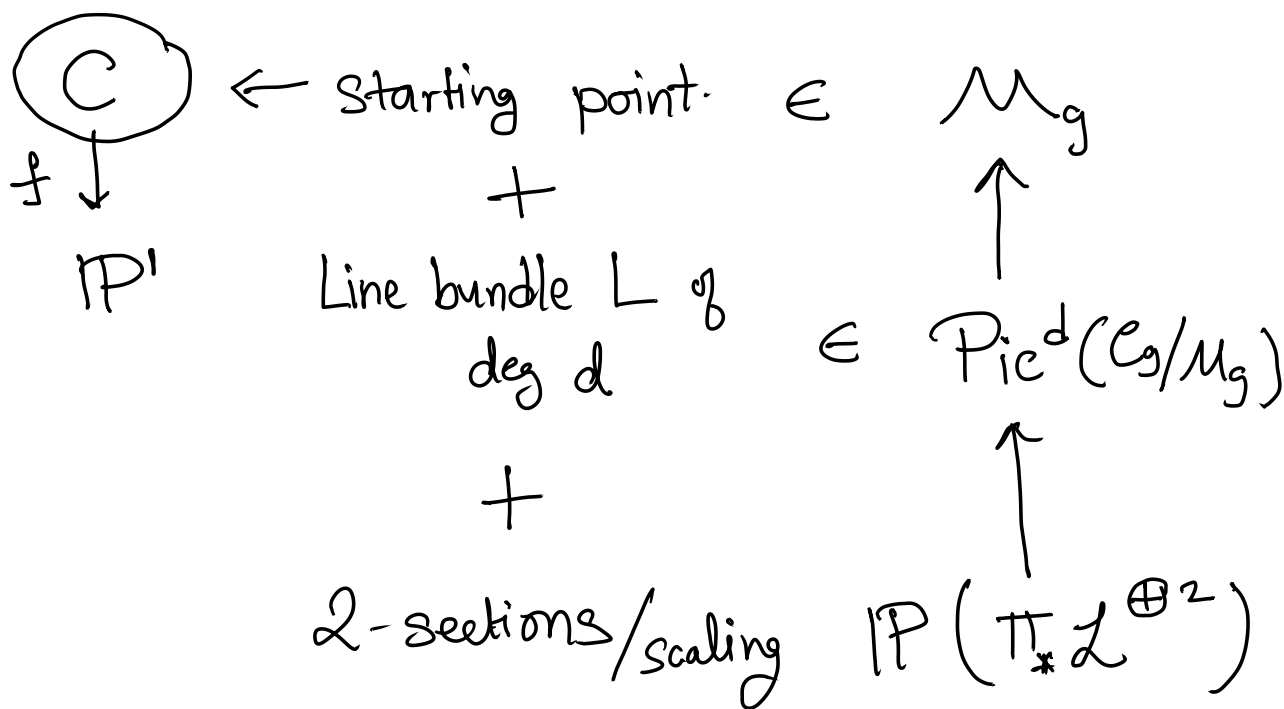 C ← Starting point. ∈ M_g
f ↓ + ↑
IP¹ Line bundle L of
deg d ∈ Pic^d(C_g/M_g)
+ ↑
2-sections/scaling IP(π_* L^{⊕2})